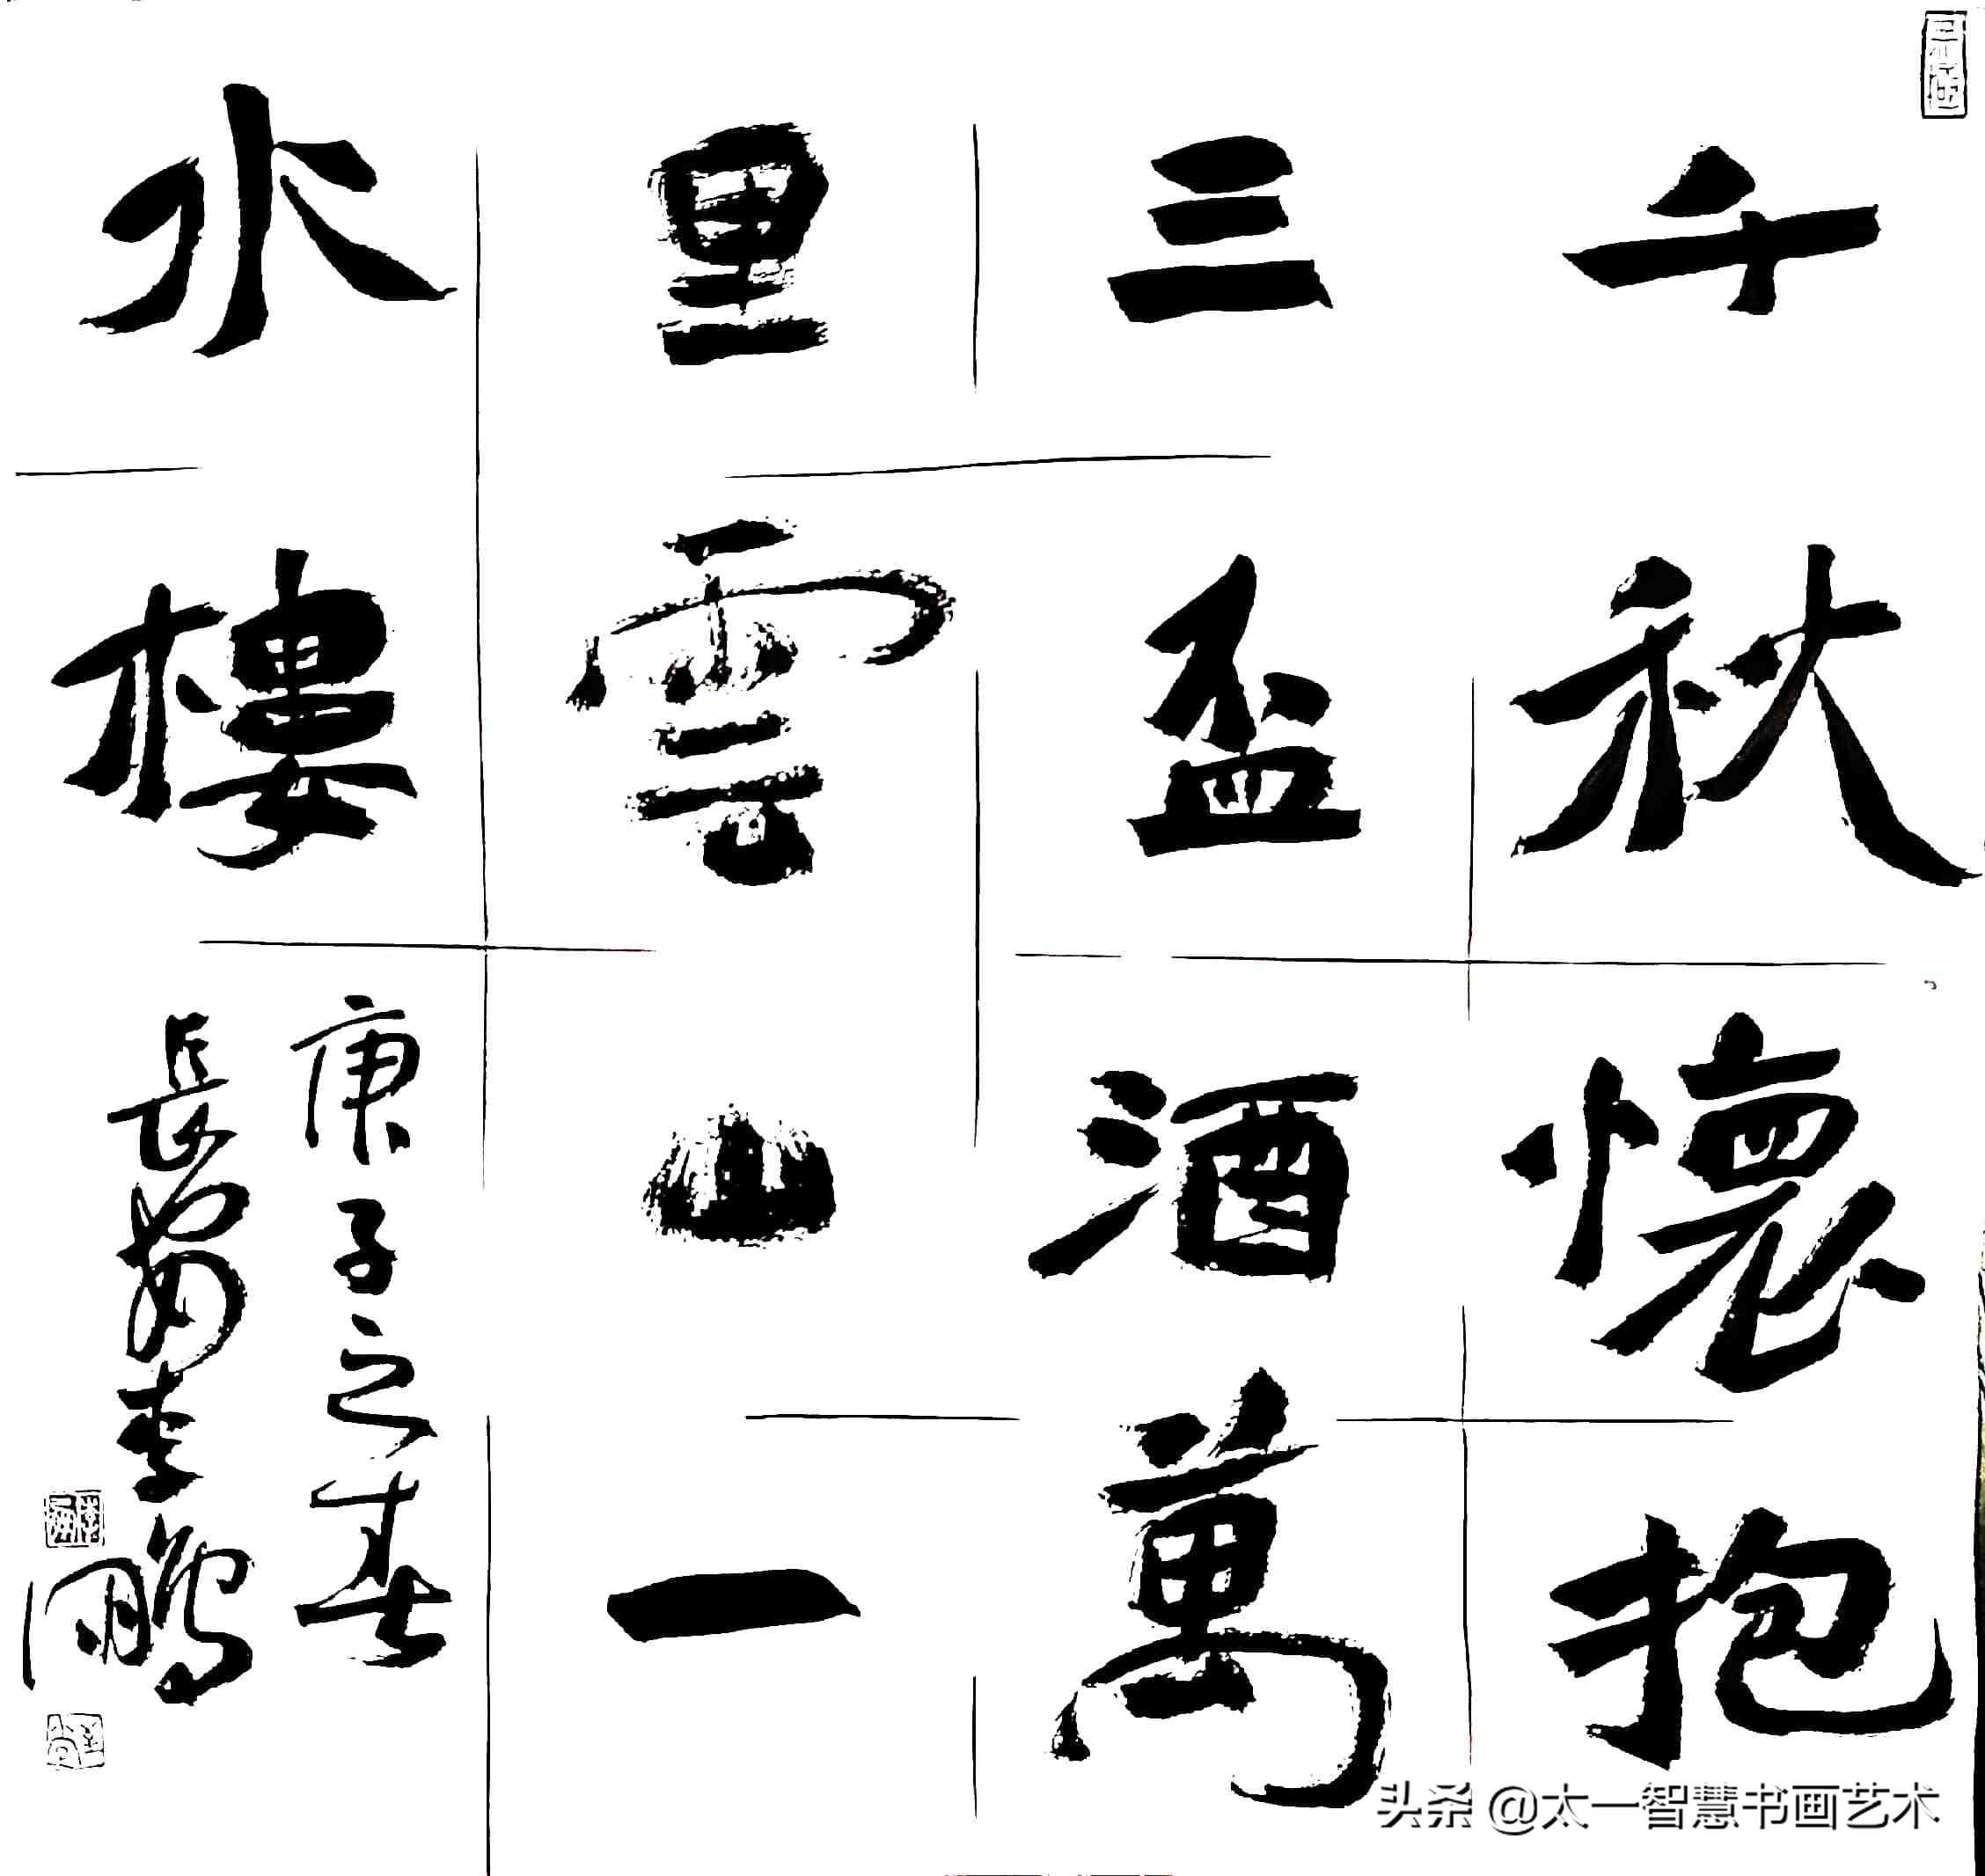 千秋懷抱
三盃酒萬
里雲山一
水樓
庚子之春
長 李鵬
头条 @太一智慧书画艺术